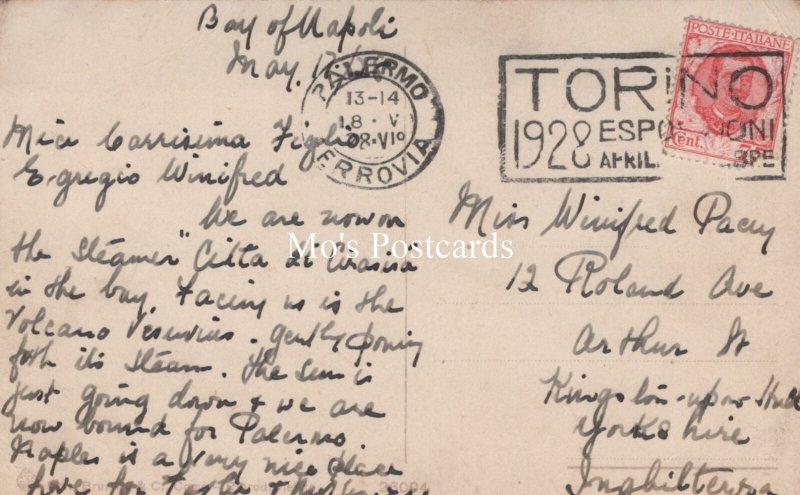 Bay of Napoli
May 17
Mia Carrissima Figlia
Egregio Winifred
We are now on
the Steamer "Citta di
in the bay. Facing us is the
Volcano Vesuvius. gently pouring
forth its steam. The sun is
just going down & we are
now bound for Palermo.
Naples is a very nice place
26094
PALERMO
13-14
18 · V
28·VIº
FERROVIA
TORINO
1928 ESPOSIZIONI
APRIL
POSTE·ITALIANE
Cent.
Miss Winifred Pacey
12 Roland Ave
Arthur St
Kingston-upon-Hull
Yorkshire
Inghilterra
Mo's Postcards